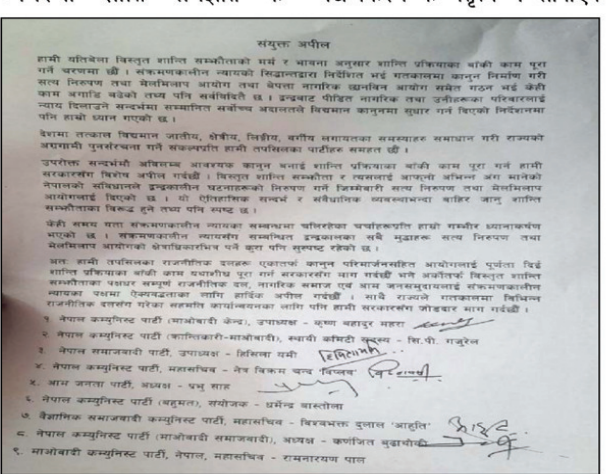 संयुक्त अपील
हामी यतिबेला विस्तृत शान्ति सम्झौताको मर्म र भावना अनुसार शान्ति प्रक्रियाका बाँकी काम पूरा
गर्ने चरणमा छौं । संक्रमणकालीन न्यायको सिद्धान्तद्वारा निर्देशित भई गतकालमा कानून निर्माण गरी
सत्य निरुपण तथा मेलमिलाप आयोग तथा बेपत्ता नागरिक छानविन आयोग समेत गठन भई केही
काम अगाडि बढेको तथ्य पनि सर्वविदितै छ । द्वन्द्वबाट पीडित नागरिक तथा उनीहरूका परिवारलाई
न्याय दिलाउने सन्दर्भमा सम्मानित सर्वोच्च अदालतले विद्यमान कानूनमा सुधार गर्न दिएको निर्देशनमा
पनि हाम्रो ध्यान गएको छ ।
देशमा तत्काल विद्यमान जातीय, क्षेत्रीय, लिङ्गीय, वर्गीय लगायतका समस्याहरु समाधान गरी राज्यको
अग्रगामी पुनर्संरचना गर्ने संकल्पप्रति हामी तपसिलका पार्टीहरु सहमत छौं ।
उपरोक्त सन्दर्भमा अविलम्ब आवश्यक कानून बनाई शान्ति प्रक्रियाका बाँकी काम पूरा गर्न हामी
सरकारसँग विशेष अपील गर्दछौं । विस्तृत शान्ति सम्झौता र त्यसलाई आफ्नो अभिन्न अंग मानेको
नेपालको संविधानले द्वन्द्वकालीन घटनाहरूको निरुपण गर्ने जिम्मेवारी सत्य निरुपण तथा मेलमिलाप
आयोगलाई दिएको छ । यो ऐतिहासिक सन्दर्भ र संवैधानिक व्यवस्थाभन्दा बाहिर जानु शान्ति
सम्झौताका विरुद्ध हुने तथ्य पनि स्पष्ट छ ।
केही समय यता संक्रमणकालीन न्यायका सम्बन्धमा चलिरहेका चर्चाहरूप्रति हाम्रो गम्भीर ध्यानाकर्षण
भएको छ । संक्रमणकालीन न्यायसँग सम्बन्धित द्वन्द्वकालका सबै मुद्दाहरू सत्य निरुपण तथा
मेलमिलाप आयोगको क्षेत्राधिकारभित्र पर्ने कुरा पनि सुस्पष्ट रहेको छ ।
अतः हामी तपसिलका राजनीतिक दलहरू एकातर्फ कानून परिमार्जनसहित आयोगलाई पूर्णता दिई
शान्ति प्रक्रियाका बाँकी काम यथाशीघ्र पूरा गर्न सरकारसँग माग गर्दछौं भने अर्कोतर्फ विस्तृत शान्ति
सम्झौताका पक्षधर सम्पूर्ण राजनीतिक दल, नागरिक समाज एवं आम जनसमुदायलाई संक्रमणकालीन
न्यायका पक्षमा ऐक्यबद्धताका लागि हार्दिक अपील गर्दछौं । साथै राज्यले गतकालमा विभिन्न
राजनीतिक दलसँग गरेका सहमति कार्यान्वयनका लागि पनि हामी सरकारसँग जोडदार माग गर्दछौं ।
१. नेपाल कम्युनिस्ट पार्टी (माओवादी केन्द्र), उपाध्यक्ष - कृष्ण बहादुर महरा
२. नेपाल कम्युनिस्ट पार्टी (क्रान्तिकारी-माओवादी), स्थायी कमिटी सदस्य - सि.पी. गजुरेल
३. नेपाल समाजवादी पार्टी, उपाध्यक्ष - हिसिला यमी
४. नेपाल कम्युनिस्ट पार्टी, महासचिव - नेत्र विक्रम चन्द 'विप्लव'
५. आम जनता पार्टी, अध्यक्ष - प्रभु साह
६. नेपाल कम्युनिस्ट पार्टी (बहुमत), संयोजक - धर्मेन्द्र बास्तोला
७. वैज्ञानिक समाजवादी कम्युनिस्ट पार्टी, महासचिव - विश्वभक्त दुलाल 'आहुति'
८. नेपाल कम्युनिस्ट पार्टी (माओवादी समाजवादी), अध्यक्ष - कर्णजित बुढाथोकी
९. माओवादी कम्युनिस्ट पार्टी, नेपाल, महासचिव - रामनारायण पाल